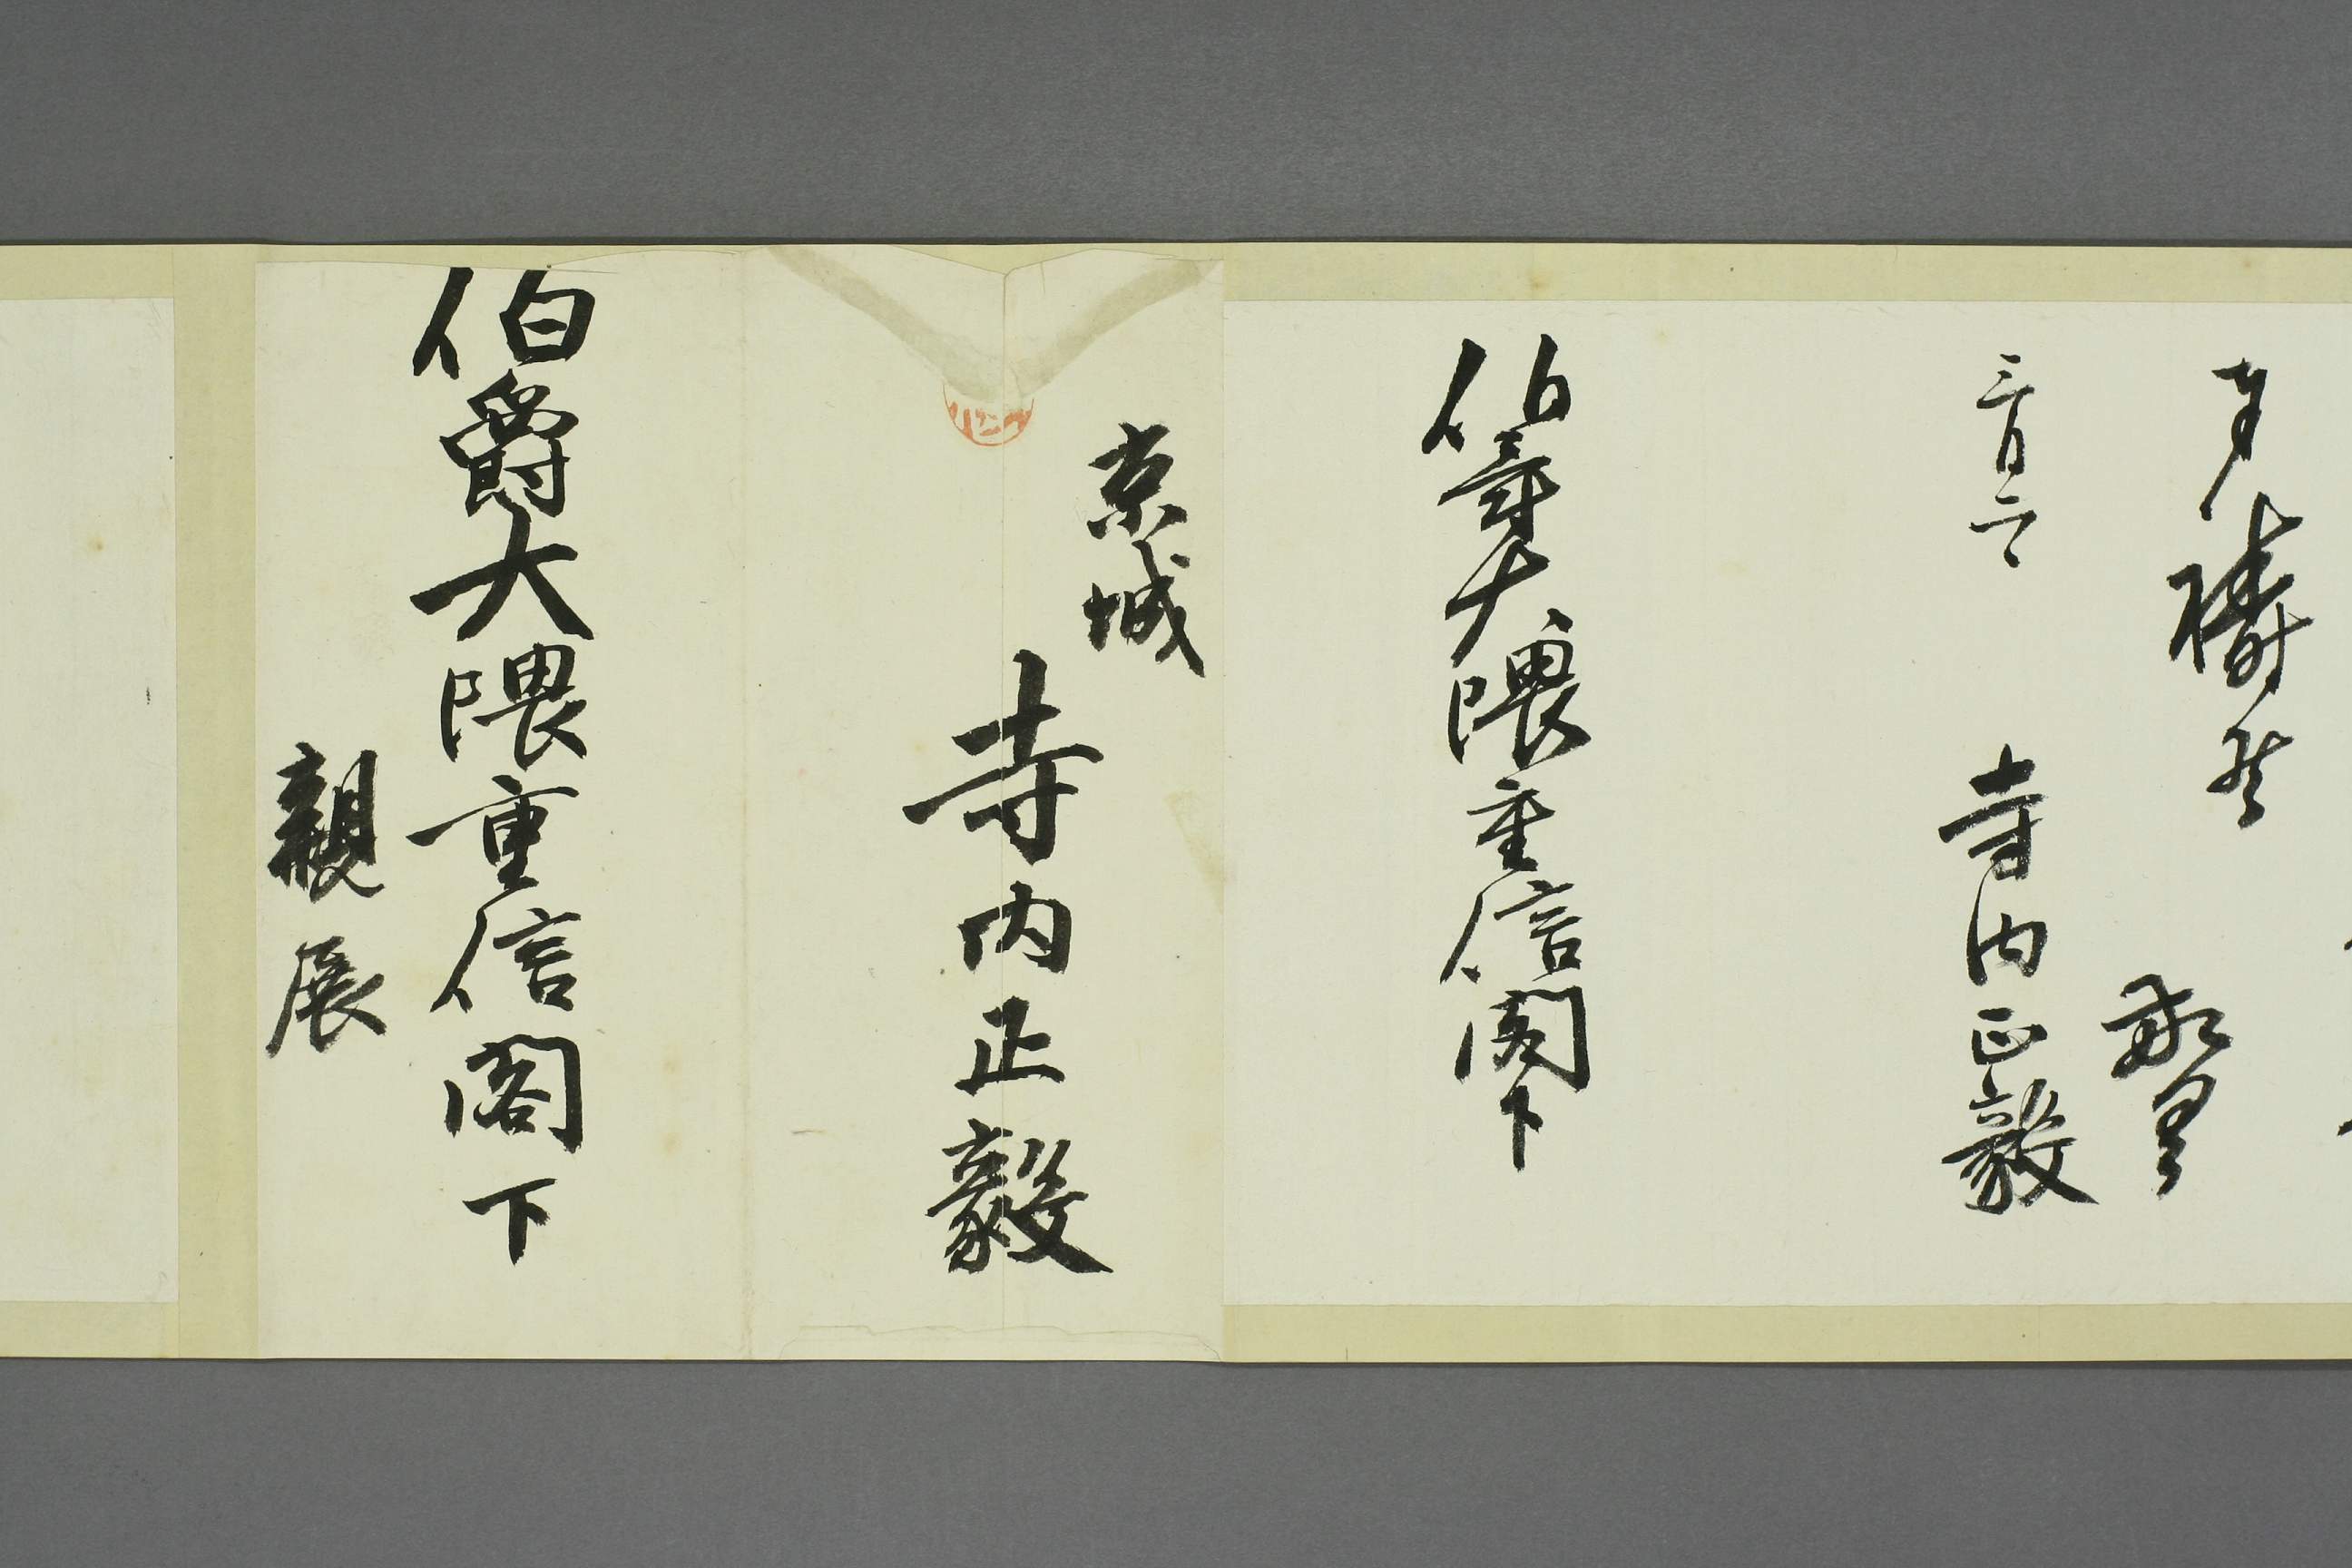 奉祷候
敬具
三月六日
寺内正毅
伯爵大隈重信閣下
京城
寺内正毅
伯爵大隈重信閣下
親展